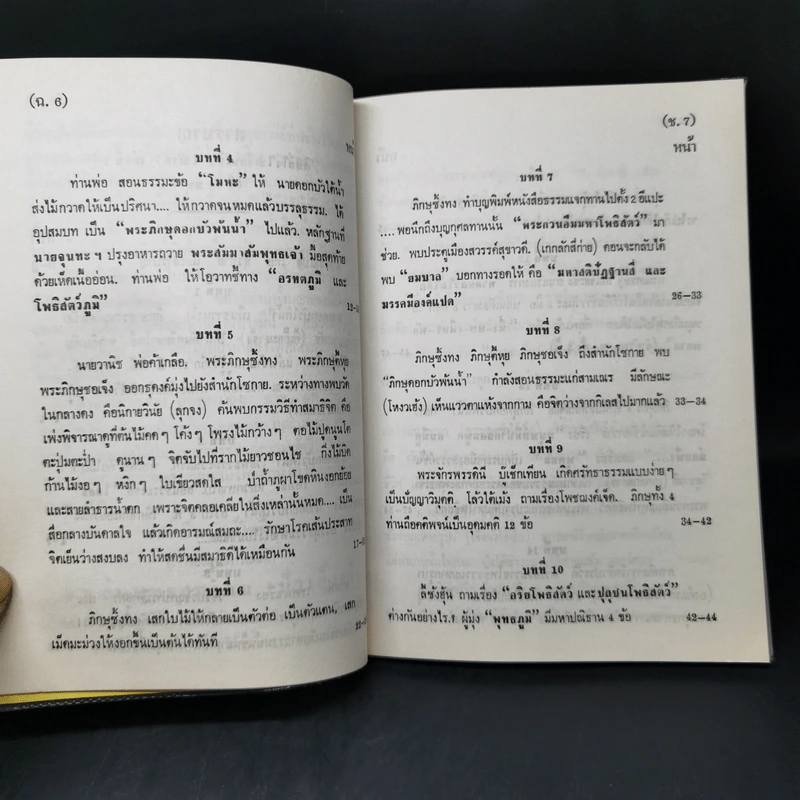 (ฉ. 6)
บทที่ 4
ท่านพ่อ สอนธรรมะข้อ “โมหะ” ให้ นายดอกบัวใต้น้ำ
ส่งไม้กวาดให้เป็นปริศนา.... ให้กวาดจนหมดแล้วบรรลุธรรม. ได้
อุปสมบท เป็น “พระภิกษุดอกบัวพ้นน้ำ” ไปแล้ว. หลักฐานที่
นายจุนทะ ฯ ปรุงอาหารถวาย พระสัมมาสัมพุทธเจ้า มื้อสุดท้าย
ด้วยเห็ดเนื้ออ่อน. ท่านพ่อ ให้โอวาทชี้ทาง “อรหตภูมิ และ
โพธิสัตว์ภูมิ”
บทที่ 5
นายวานิช พ่อค้าเกลือ. พระภิกษุซังทง พระภิกษุตีหุย
พระภิกษุชอเจ็ง ออกธุดงค์มุ่งไปยังสำนักโชกาย. ระหว่างทางพบวัด
ในกลางดง คือนิกายวินัย (ลุกจง) ค้นพบกรรมวิธีทำสมาธิจิต คือ
เพ่งพิจารณาดูที่ต้นไม้คดๆ โค้งๆ โพรงไม้กว้างๆ ตอไม้ปูดนูนโต
ตะปุ่มตะป่ำ ดูนานๆ จิตจับไปที่รากไม้ยาวชอนไช กิ่งไม้บิด
ก้านไม้งอๆ หงิกๆ ใบเขียวสดใส ป่าถ้ำภูผาโขดหินงอกย้อย
และสายลำธารน้ำตก เพราะจิตคลอเคลียในสิ่งเหล่านั้นหมด.... เป็น
สื่อกลางบันดาลใจ แล้วเกิดอารมณ์สมถะ.... รักษาโรคเส้นประสาท
จิตเย็นว่างสงบลง ทำให้สดชื่นมีสมาธิดีได้เหมือนกัน
บทที่ 6
ภิกษุซังทง เสกใบไม้ให้กลายเป็นตัวต่อ เป็นตัวแตน, เสก
เม็ดมะม่วงให้งอกขึ้นเป็นต้นได้ทันที
(ช. 7)
หน้า
บทที่ 7
ภิกษุซังทง ทำบุญพิมพ์หนังสือธรรมแจกทานไปตั้ง 2 อีแปะ
.... พอนึกถึงบุญกุศลทานนั้น “พระกวนอิมมหาโพธิสัตว์” มา
ช่วย. พบประตูเมืองสวรรค์สุขาวดี. (เกกลักสี่ก่าย) ตอนจะกลับได้
พบ “ยมบาล” บอกทางรอดให้ คือ “มหาสติปัฏฐานสี่ และ
มรรคมีองค์แปด”
26—33
บทที่ 8
ภิกษุซังทง ภิกษุตีหุย ภิกษุชอเจ็ง ถึงสำนักโชกาย พบ
“ภิกษุดอกบัวพ้นน้ำ” กำลังสอนธรรมะแก่สามเณร มีลักษณะ
(โหงวเฮ้ง) เห็นแววตาแห้งจากกาม คือจิตว่างจากกิเลสไปมากแล้ว 33—34
บทที่ 9
พระจักรพรรดินี บู๊เช็กเทียน เกิดศรัทธาธรรมแบบง่ายๆ
เป็นปัญญาวิมุตติ. โล้วไต้เม้ง ถามเรื่องโพชฌงค์เจ็ด. ภิกษุทั้ง 4
ท่านถือคติพจน์เป็นอุดมคติ 12 ข้อ
34—42
บทที่ 10
ลีซังฮุ้น ถามเรื่อง “อริยโพธิสัตว์ และปุถุชนโพธิสัตว์”
ต่างกันอย่างไร.? ผู้มุ่ง “พุทธภูมิ” มีมหาปณิธาน 4 ข้อ 42—44